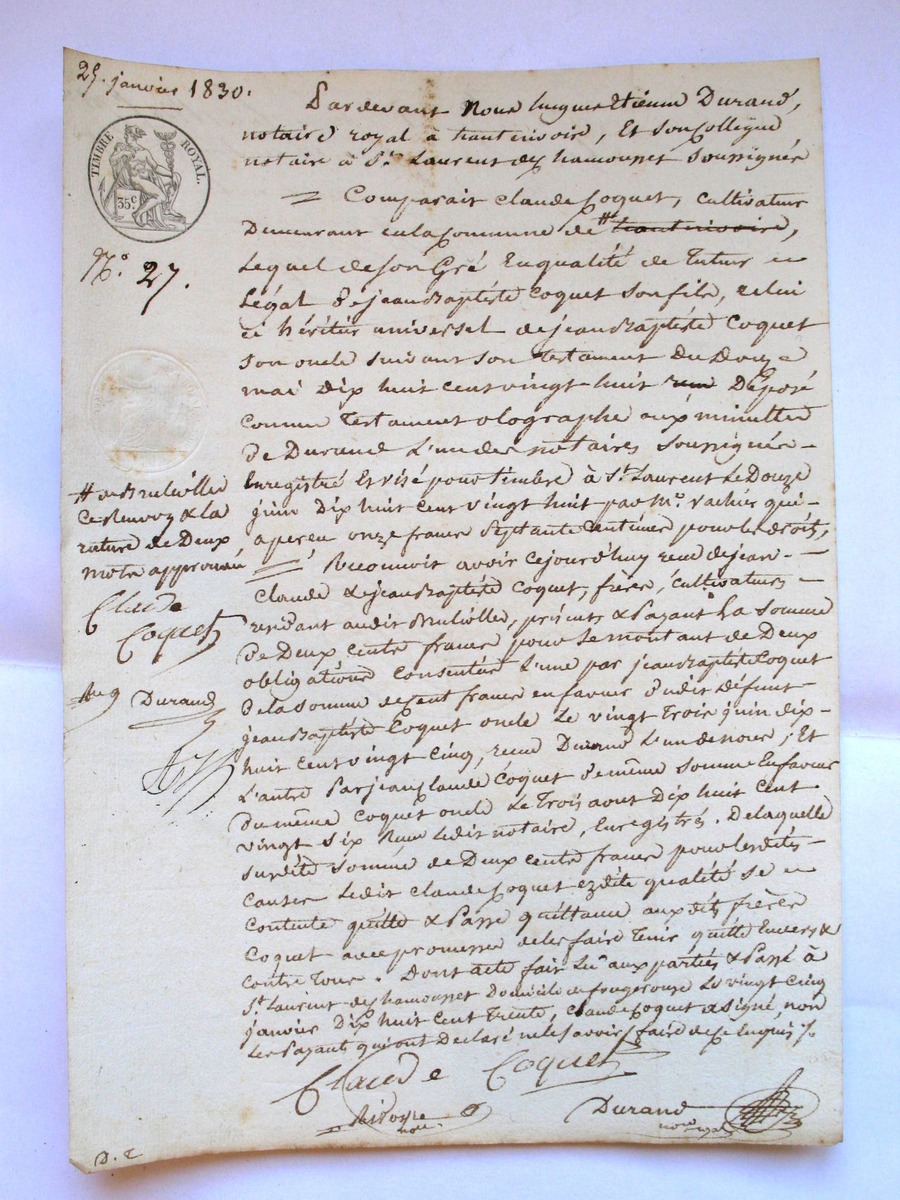 25. janvier 1830.
TIMBRE ROYAL.
35c
No. 27.
Pardevant Nous hugues Etienne Durand,
notaire royal à hauterivoire, Et son Collegue
notaire à St. Laurent de chamousset soussignés
= Comparait Claude Coquet, cultivateur
Demeurant en la Commune de # hauterivoire,
Lequel de son Gré En qualité de Tuteur
Légal de jean Baptéste Coquet son fils, celui
ci héritier universel de jean Baptéste Coquet
son oncle suivant son testament du Douze
mai Dix huit cent vingt huit Déposé
comme Testament olographe aux minuttes
De Durand L'un des notaires soussignés
Enregistré et visé pour timbre à St. Laurent Le Douze
juin Dix huit cent vingt huit par Mr. vachier qui
a perçu onze francs septante Centimes pour les droits,
= Reconnoit avoir cejourd'huy reçu de jean
Claude & jean Baptéste Coquet, frères, cultivateurs
residant audit Brulliolles, présents & Payant La somme
De Deux Cents francs pour Le montant de Deux
obligations Consenties L'une par jean Baptéste Coquet
De la somme de Cent francs en faveur dudit défunt
jean Baptéste Coquet oncle Le vingt Trois juin dix
huit Cent vingt Cinq, reçue Durand L'un de nous; Et
L'autre Par jean Claude Coquet De même somme En faveur
Du même Coquet oncle Le Trois aout Dix huit Cent
vingt six Reçue Ledit notaire, Enregistrés. De laquelle
susdite somme de Deux Cents francs pour lesdites
causes Ledit Claude Coquet ezdite qualité se
Contente quitte & Passe quittance aux dits frères
Coquet avec promesse de les faire Tenir quitte Envers &
Contre Tous. Dont acte fait Lu aux parties & Passé à
St. Laurent de chamousset Domicile de fougerouse Le vingt Cinq
janvier Dix huit Cent Trente, Claude Coquet a signé, non
Les Payants qui ont Déclaré ne le savoir faire de ce Enquis
# de Brulliolles
Ce Renvoy & la
rature de Deux
mots approuvés
Claude
Coquet
Durand
Claude Coquet
Durand
not. royal
D. C